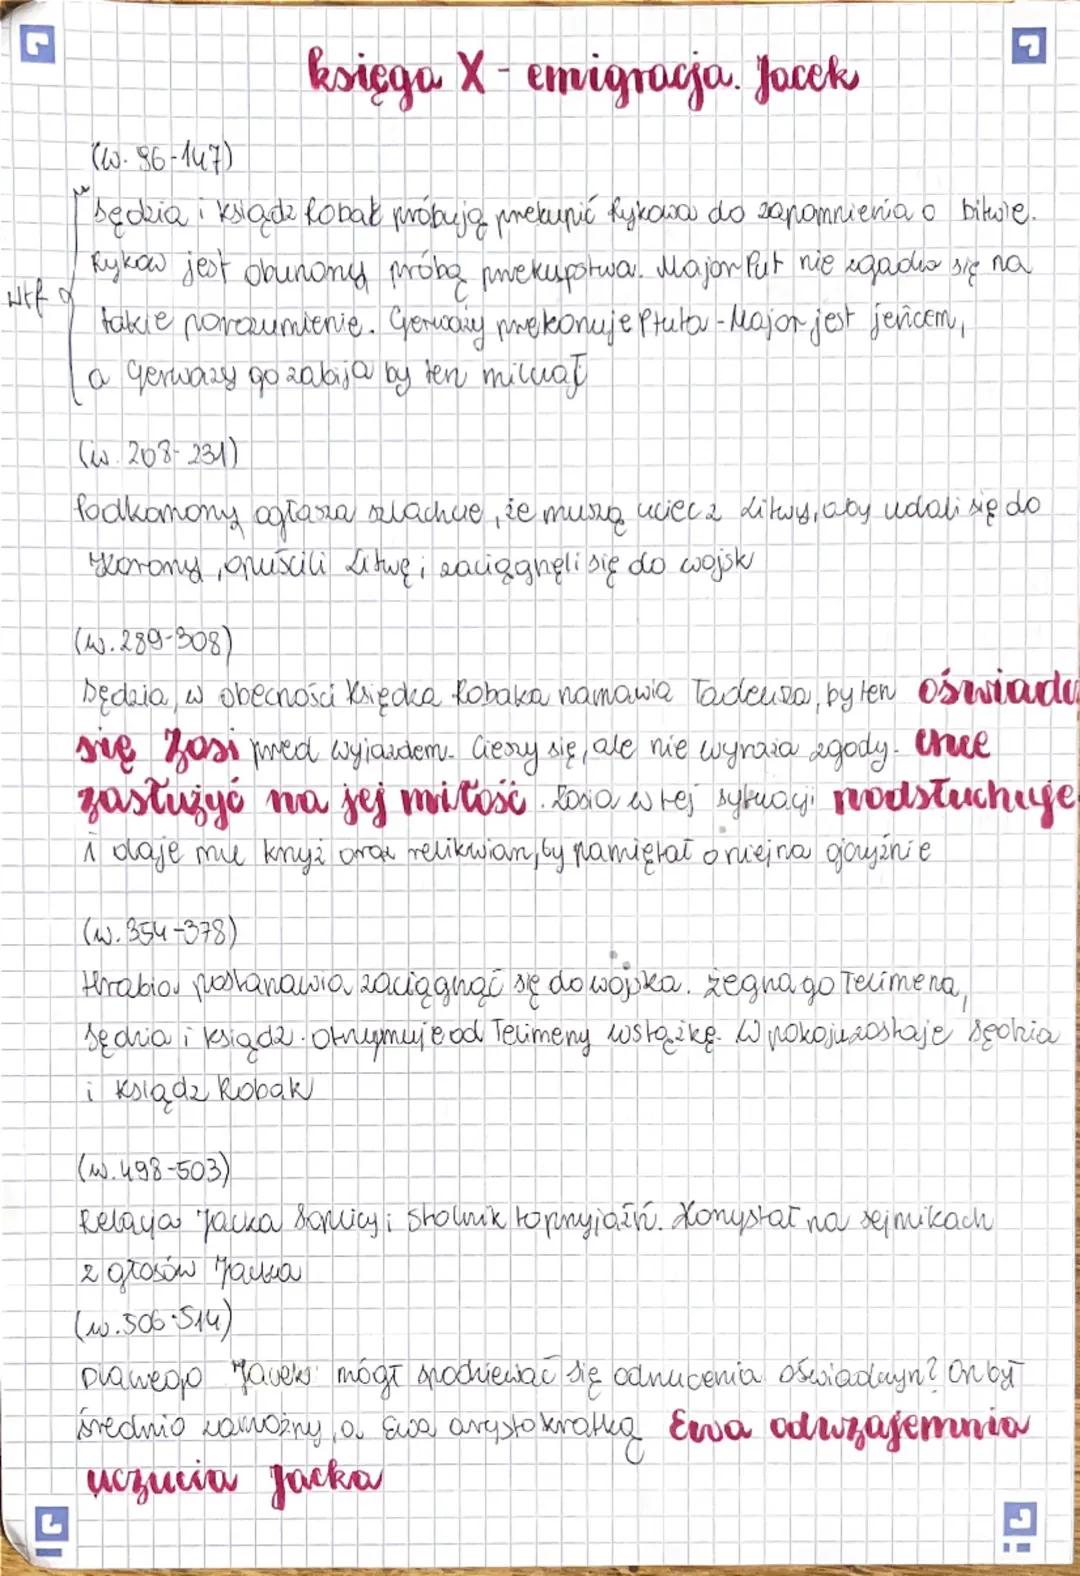 księga X - emigracja. Jacek
(w. 96-147)
Sędzia i ksiądz Robak próbują przekupić Rykowa do zapomnienia o bitwie.
Rykow jest oburzony próbą przekupstwa. Major Put nie zgadza się na
wtf
takie porozumienie. Gerwazy przekonuje Płuta - Major jest jeńcem,
a Gerwazy go zabija by ten milczał
(w. 208-231)
Podkomorzy ogłasza szlachcie, że muszą uciec z Litwy, aby udali się do
Korony, opuścili Litwę i zaciągnęli się do wojsk
(w. 289-308)
Sędzia, w obecności Księdza Robaka namawia Tadeusza, by ten oświadc
się Zosi przed wyjazdem. Cieszy się, ale nie wyraża zgody. Chce
zasłużyć na jej miłość. Zosia w tej sytuacji podsłuchuje
i daje mu krzyż oraz relikwiarz, by pamiętał o niej na
(w. 354-378)
Hrabia postanawia zaciągnąć się do wojska. Żegna go Telimena,
Sędzia i ksiądz. Otrzymuje od Telimeny wstążkę. W pokoju zostaje Sędzia
i ksiądz Robak
(w. 498-503)
Relacja Jacka Soplicy i Stolnik to przyjaźń. Korzystał na sejmikach
z głosów Jacka
(w. 506-514)
Dlaczego Jacek mógł spodziewać się odrzucenia oświadczyn? On był
średnio zamożny, a Ewa arystokratką Ewa odwzajemnia
uczucia Jacka